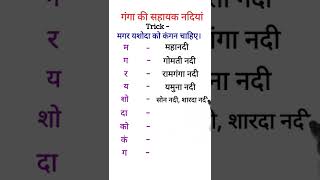 गंगा की सहायक नदियां
Trick -
मगर यशोदा को कंगन चाहिए।
म - महानदी
ग - गोमती नदी
र - रामगंगा नदी
य - यमुना नदी
शो - सोन नदी, शारदा नदी
दा -
को -
कं -
ग -